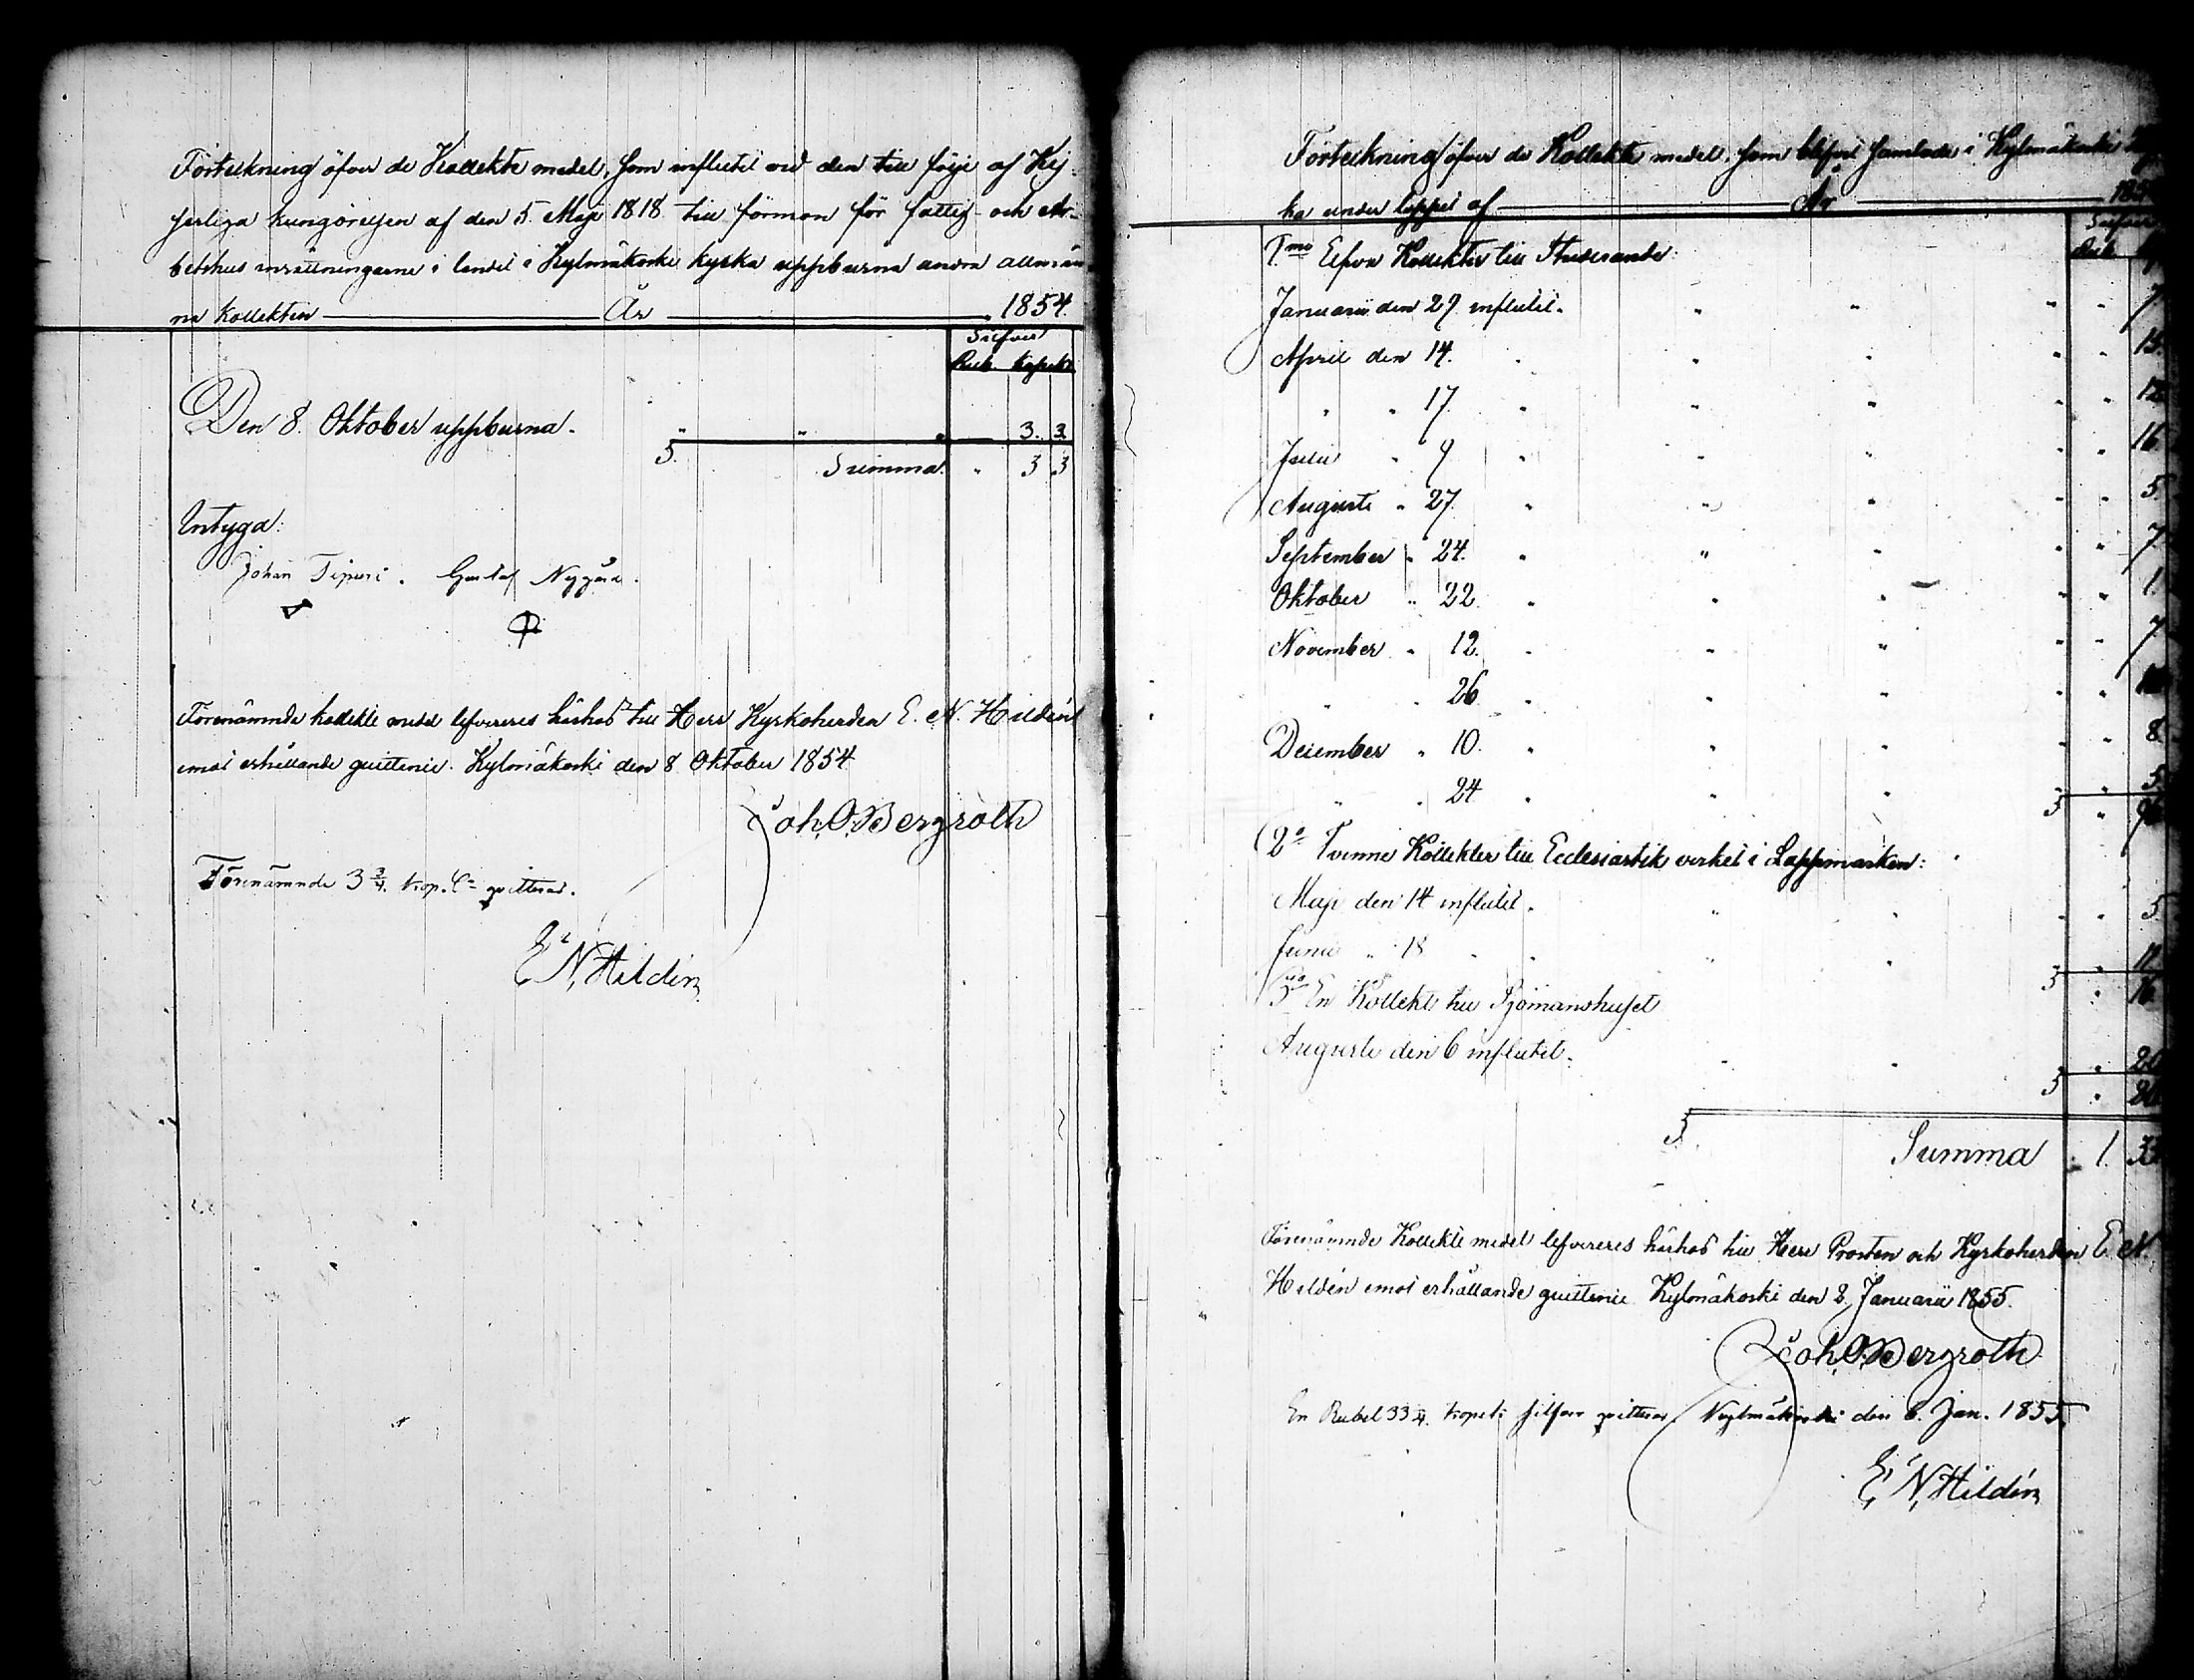 Förteckning öfver de Kollekte medel, som influtit vid den till följe af Kej-
serliga kungörelsen af den 5 Maji 1818 till förmon för fattig- och Ar-
betshus inrättningarne i landet i Kylmäkoski kyrka uppburna andra allmän-
na kollekten År 1854.
Silfver
Rub. kopek.
Den 8. Oktober uppburna. " " " 3. 3
S Summa. " 3 3
Intyga:
Johan Tipuri. Gustaf Nygård.
Förenämnde kollekte medel lefvereres härhos till Herr Kyrkoherden E. N. Hildén
emot erhållande quittence. Kylmäkoski den 8 Oktober 1854
Joh. O. Bergroth
Förenämnde 3 3/4. kop. Sr qvitteras.
E. N. Hildén
Förteckning öfver de Kollekte medel, som blifvit samlade i Kylmäkoski
ka under loppet af År 185
Silfver
Rub.
1mo Elfva Kollekter till Studerande:
Januarii den 29. influtit. " " " " 7
April den 14. " " " " " 15.
" " 17. " " " " "
Julii " 9 " " " " " 16
Augusti " 27. " " " " " 5.
September " 24. " " " " " 7
Oktober " 22 " " " " " 1.
November " 12. " " " " " 7
" " 26 " " " " "
December " 10. " " " " " 8.
" " 24 " " " " 5.
S "
2o Tvenne Kollekter till Ecclesiastik verket i Lappmarken:
Maji den 14 influtit. " " " " 5
Junii " 18 " " " " " 11
S " 16
3tio En Kollekt till Sjömanshuset
Augusti den 6 influtit. " "
S "
S Summa 1. 33
Förenämnde Kollekte medel lefvereres härhos till Herr Prosten och Kyrkoherden E. N.
Hildén emot erhållande quittence Kylmäkoski den 8 Januarii 1855.
Joh. O. Bergroth
En Rubel 33 kopek silfver qvitteras, Kylmäkoski den 8. Jan. 1855,
E. N. Hildén